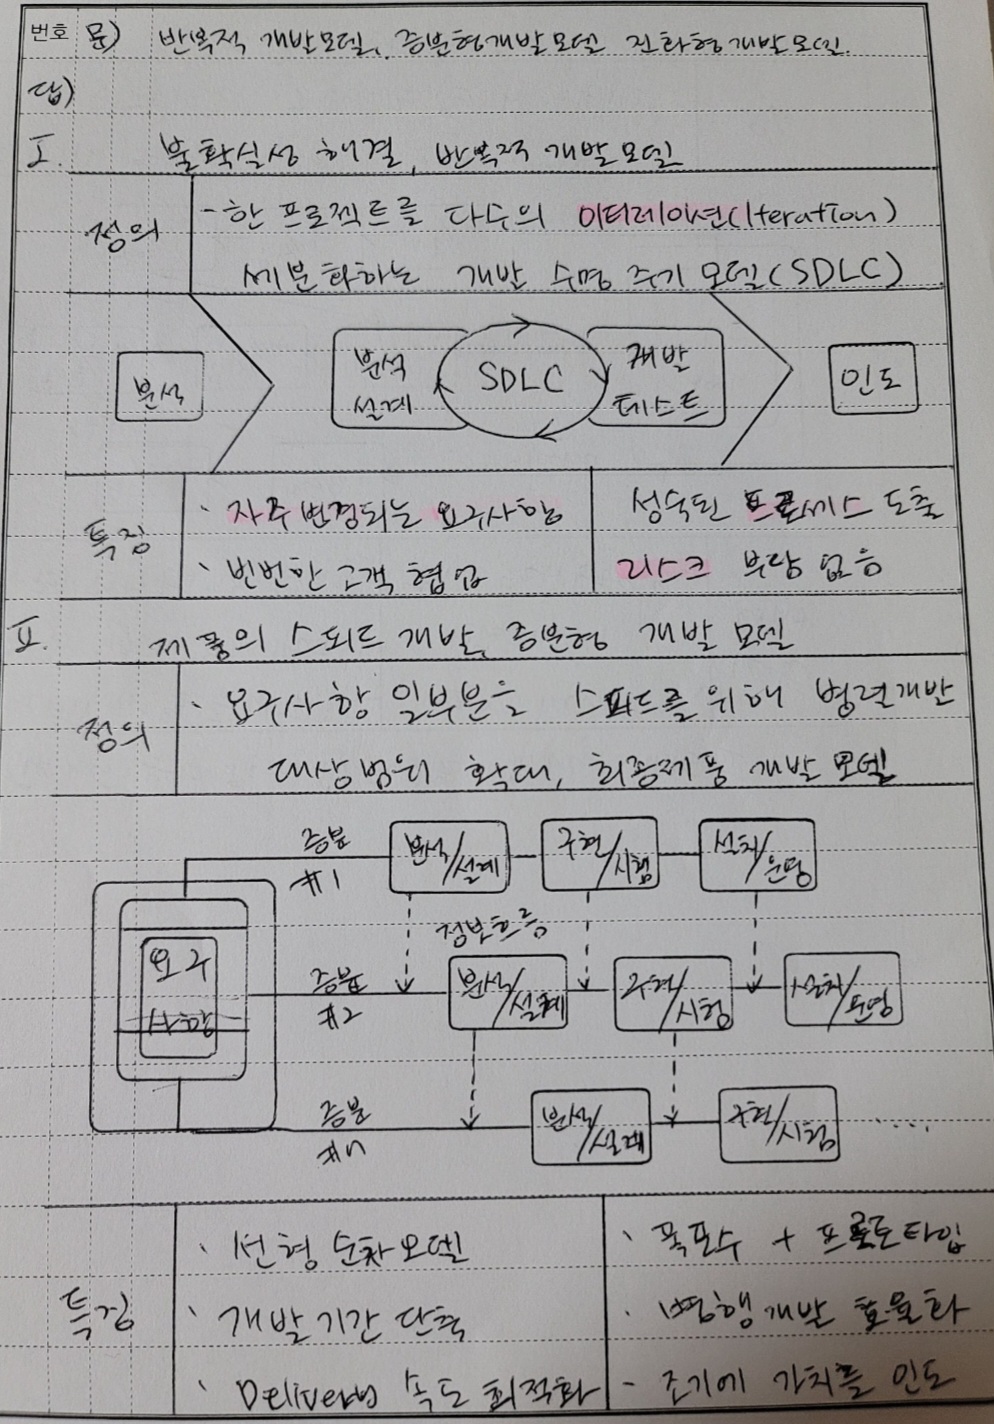 번호 문) 반복적 개발모델, 증분형개발모델 진화형개발모델.
답)
I. 불확실성 해결, 반복적 개발모델
정의
- 한 프로젝트를 다수의 이터레이션(Iteration)
세분화하는 개발 수명 주기 모델(SDLC)
분석
분석
설계
SDLC
개발
테스트
인도
특징
· 자주변경되는 요구사항
· 빈번한 고객 협업
성숙된 프로세스 도출
리스크 부담 없음
II. 제품의 스피드 개발, 증분형 개발 모델
정의
· 요구사항 일부분을 스피드를 위해 병렬개발
대상범위 확대, 최종제품 개발 모델
증분
#1
분석/설계
구현/시험
설치/운영
정보흐름
요구
사항
증분
#2
분석/설계
구현/시험
설치/운영
증분
#n
분석/설계
구현/시험
....
특징
· 선형 순차모델
· 개발기간 단축
· Delivery 속도 최적화
· 폭포수 + 프로토타입
· 병행개발 효율화
- 조기에 가치를 인도